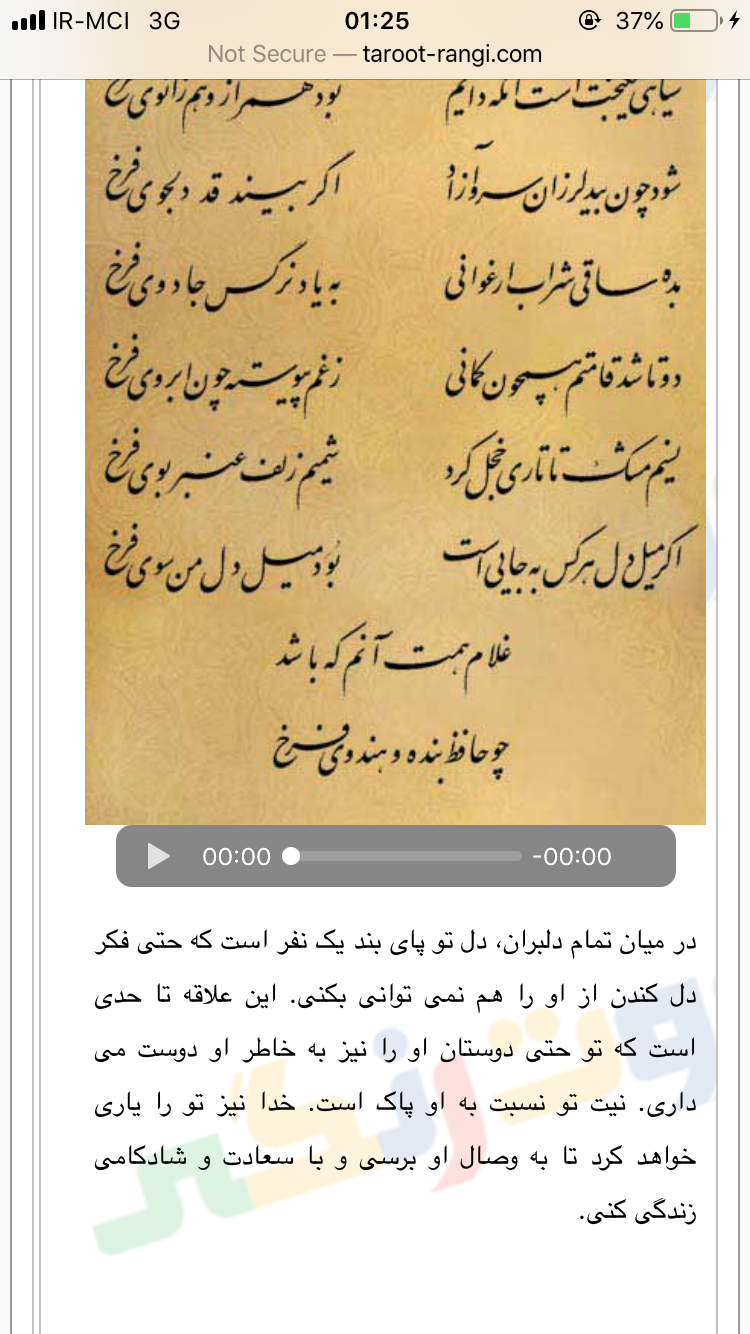 IR-MCI 3G 01:25 37%
Not Secure — taroot-rangi.com
سیاهی نیکبخت است آنکه دایم بود همراز و هم زانوی فرخ
شود چون بید لرزان سرو آزاد اگر بیند قد دلجوی فرخ
بده ساقی شراب ارغوانی به یاد نرگس جادوی فرخ
دوتا شد قامتم همچون کمانی ز غم پیوسته چون ابروی فرخ
نسیم مشک تاتاری خجل کرد شمیم زلف عنبر بوی فرخ
اگر میل دل هر کس به جایی است بُوَد میل دل من سوی فرخ
غلام همت آنم که باشد
چو حافظ بنده و هندوی فرخ
00:00 -00:00
در میان تمام دلبران، دل تو پای بند یک نفر است که حتی فکر
دل کندن از او را هم نمی توانی بکنی. این علاقه تا حدی
است که تو حتی دوستان او را نیز به خاطر او دوست می
داری. نیت تو نسبت به او پاک است. خدا نیز تو را یاری
خواهد کرد تا به وصال او برسی و با سعادت و شادکامی
زندگی کنی.